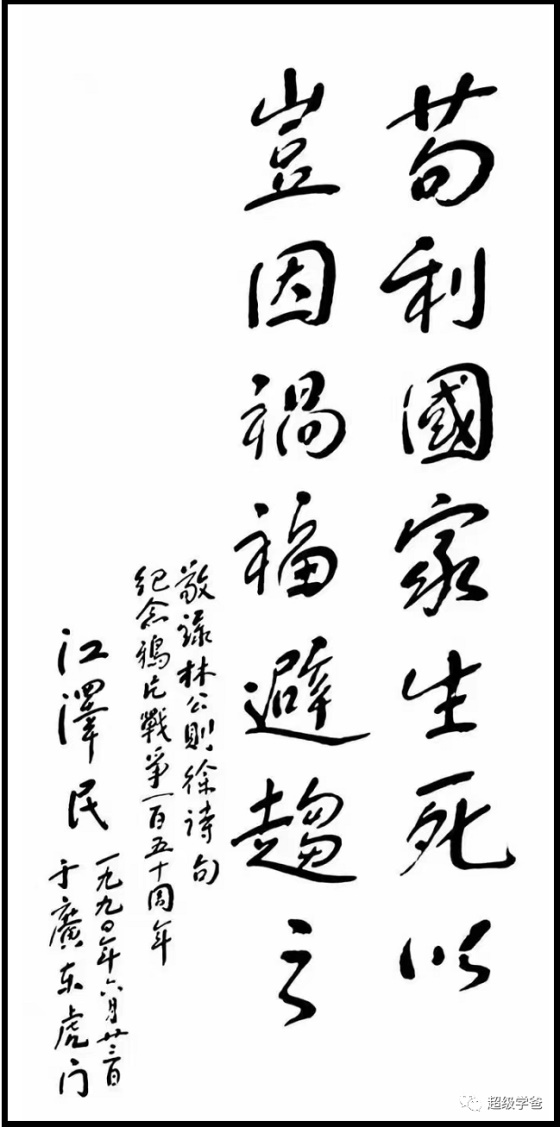 苟利國家生死以
豈因禍福避趨之
敬錄林公則徐詩句
紀念鴉片戰爭一百五十周年
江澤民
一九九〇年六月廿三日
于廣东虎门
超级学爸